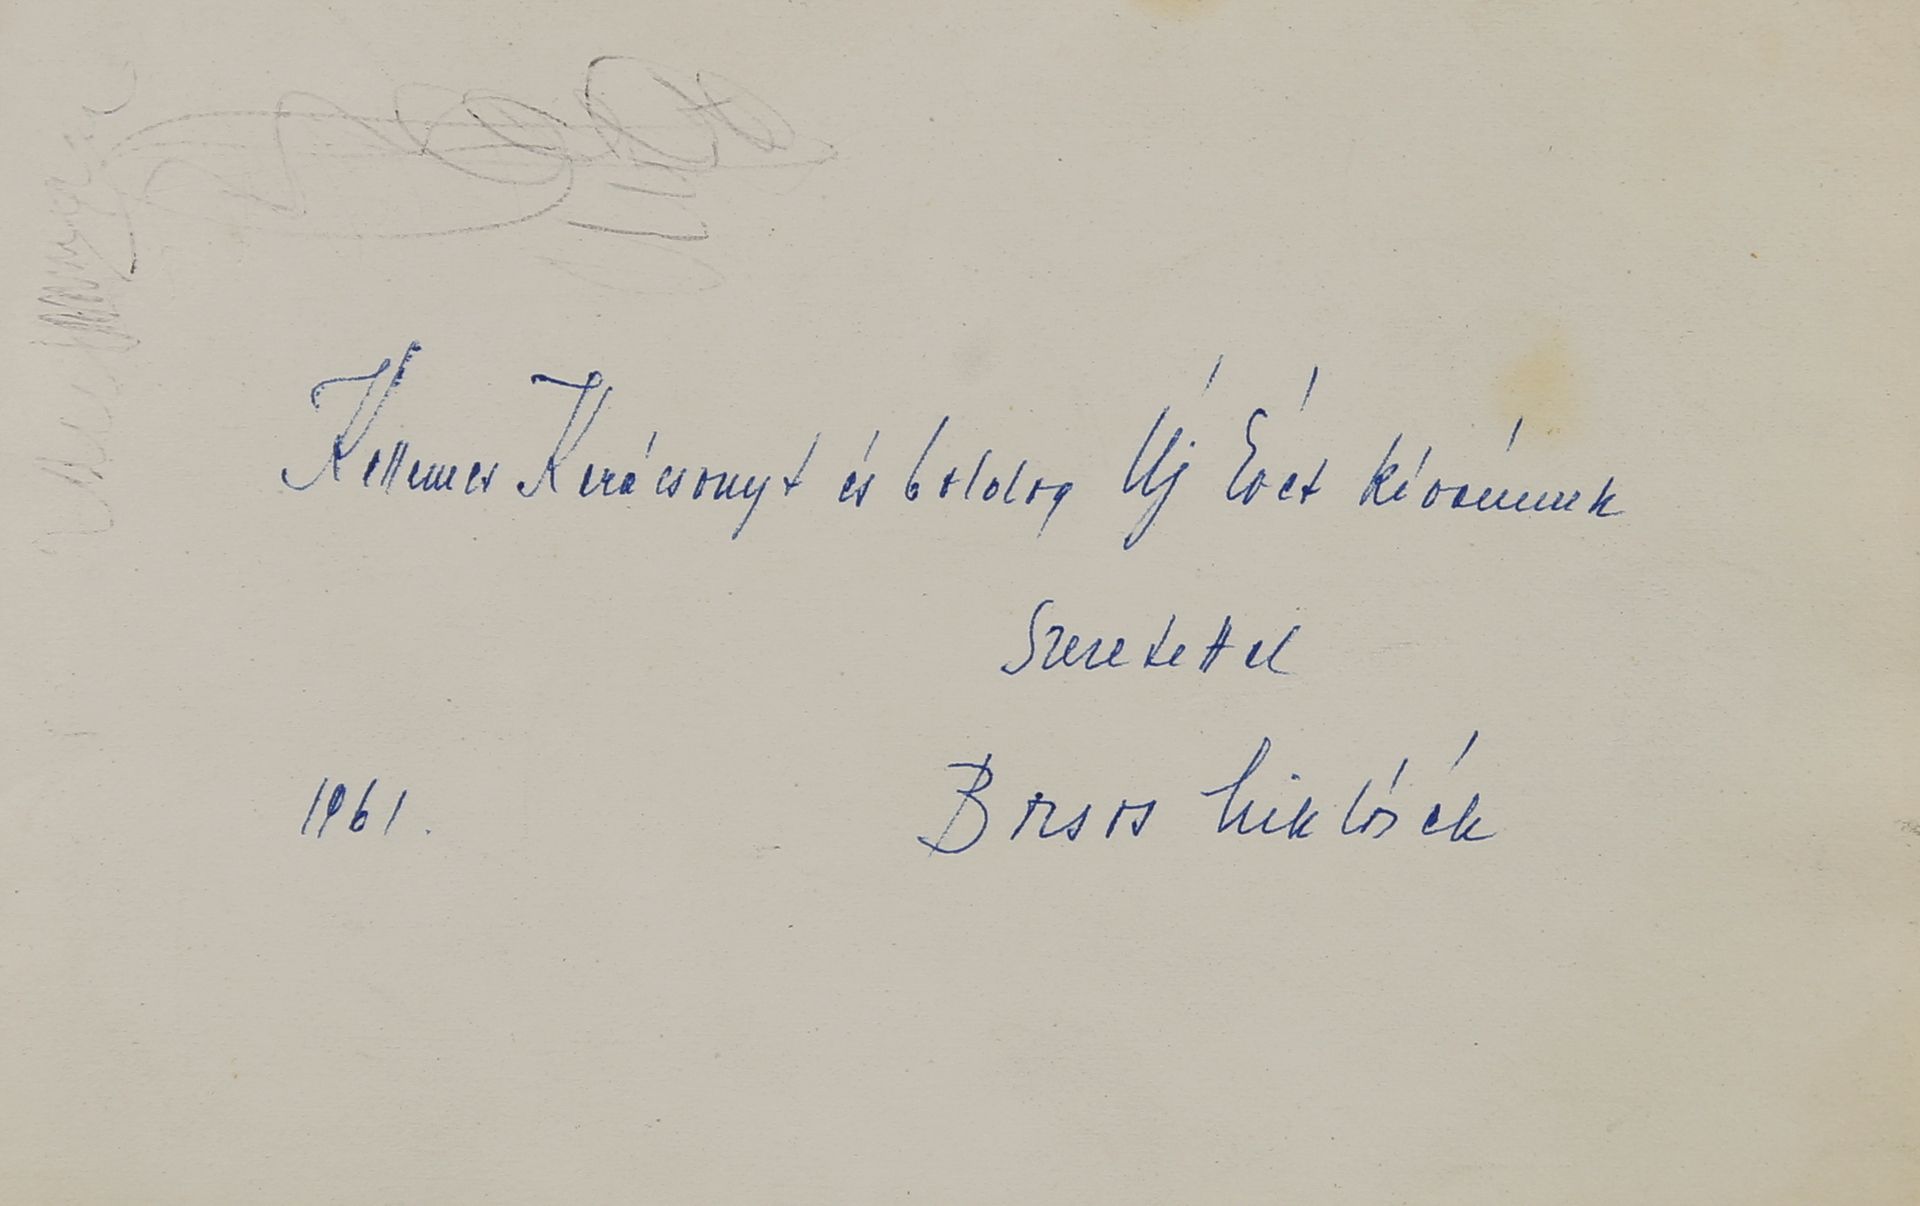 Kellemes Karácsonyt és boldog Új Évet kívánunk
Szeretettel
1961. Borsos Miklósék